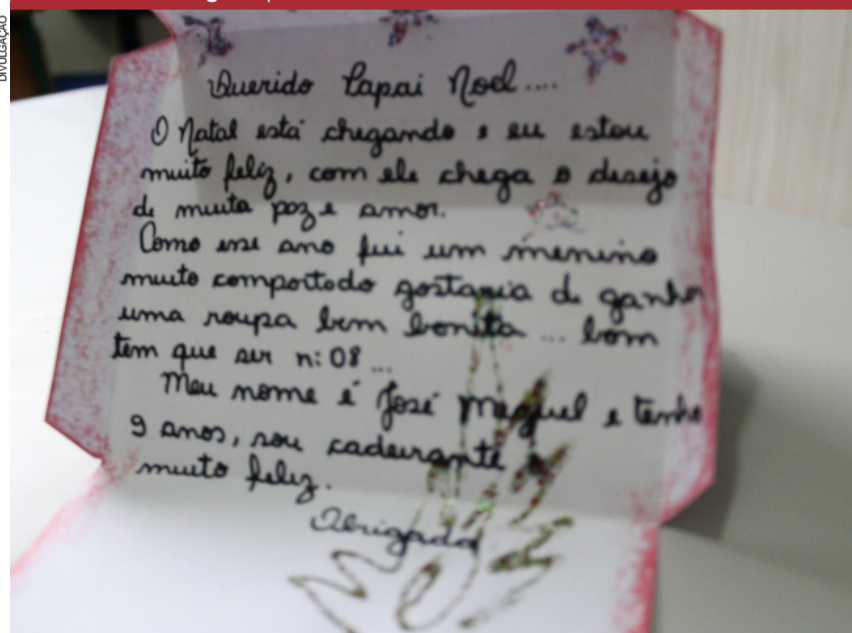 DIVULGAÇÃO
Querido Papai Noel....
O Natal está chegando e eu estou
muito feliz, com ele chega o desejo
de muita paz e amor.
Como esse ano fui um menino
muito comportado gostaria de ganhar
uma roupa bem bonita ... bom
tem que ser n: 08 ...
Meu nome é José Miguel e tenho
9 anos, sou cadeirante
muito feliz.
Obrigado